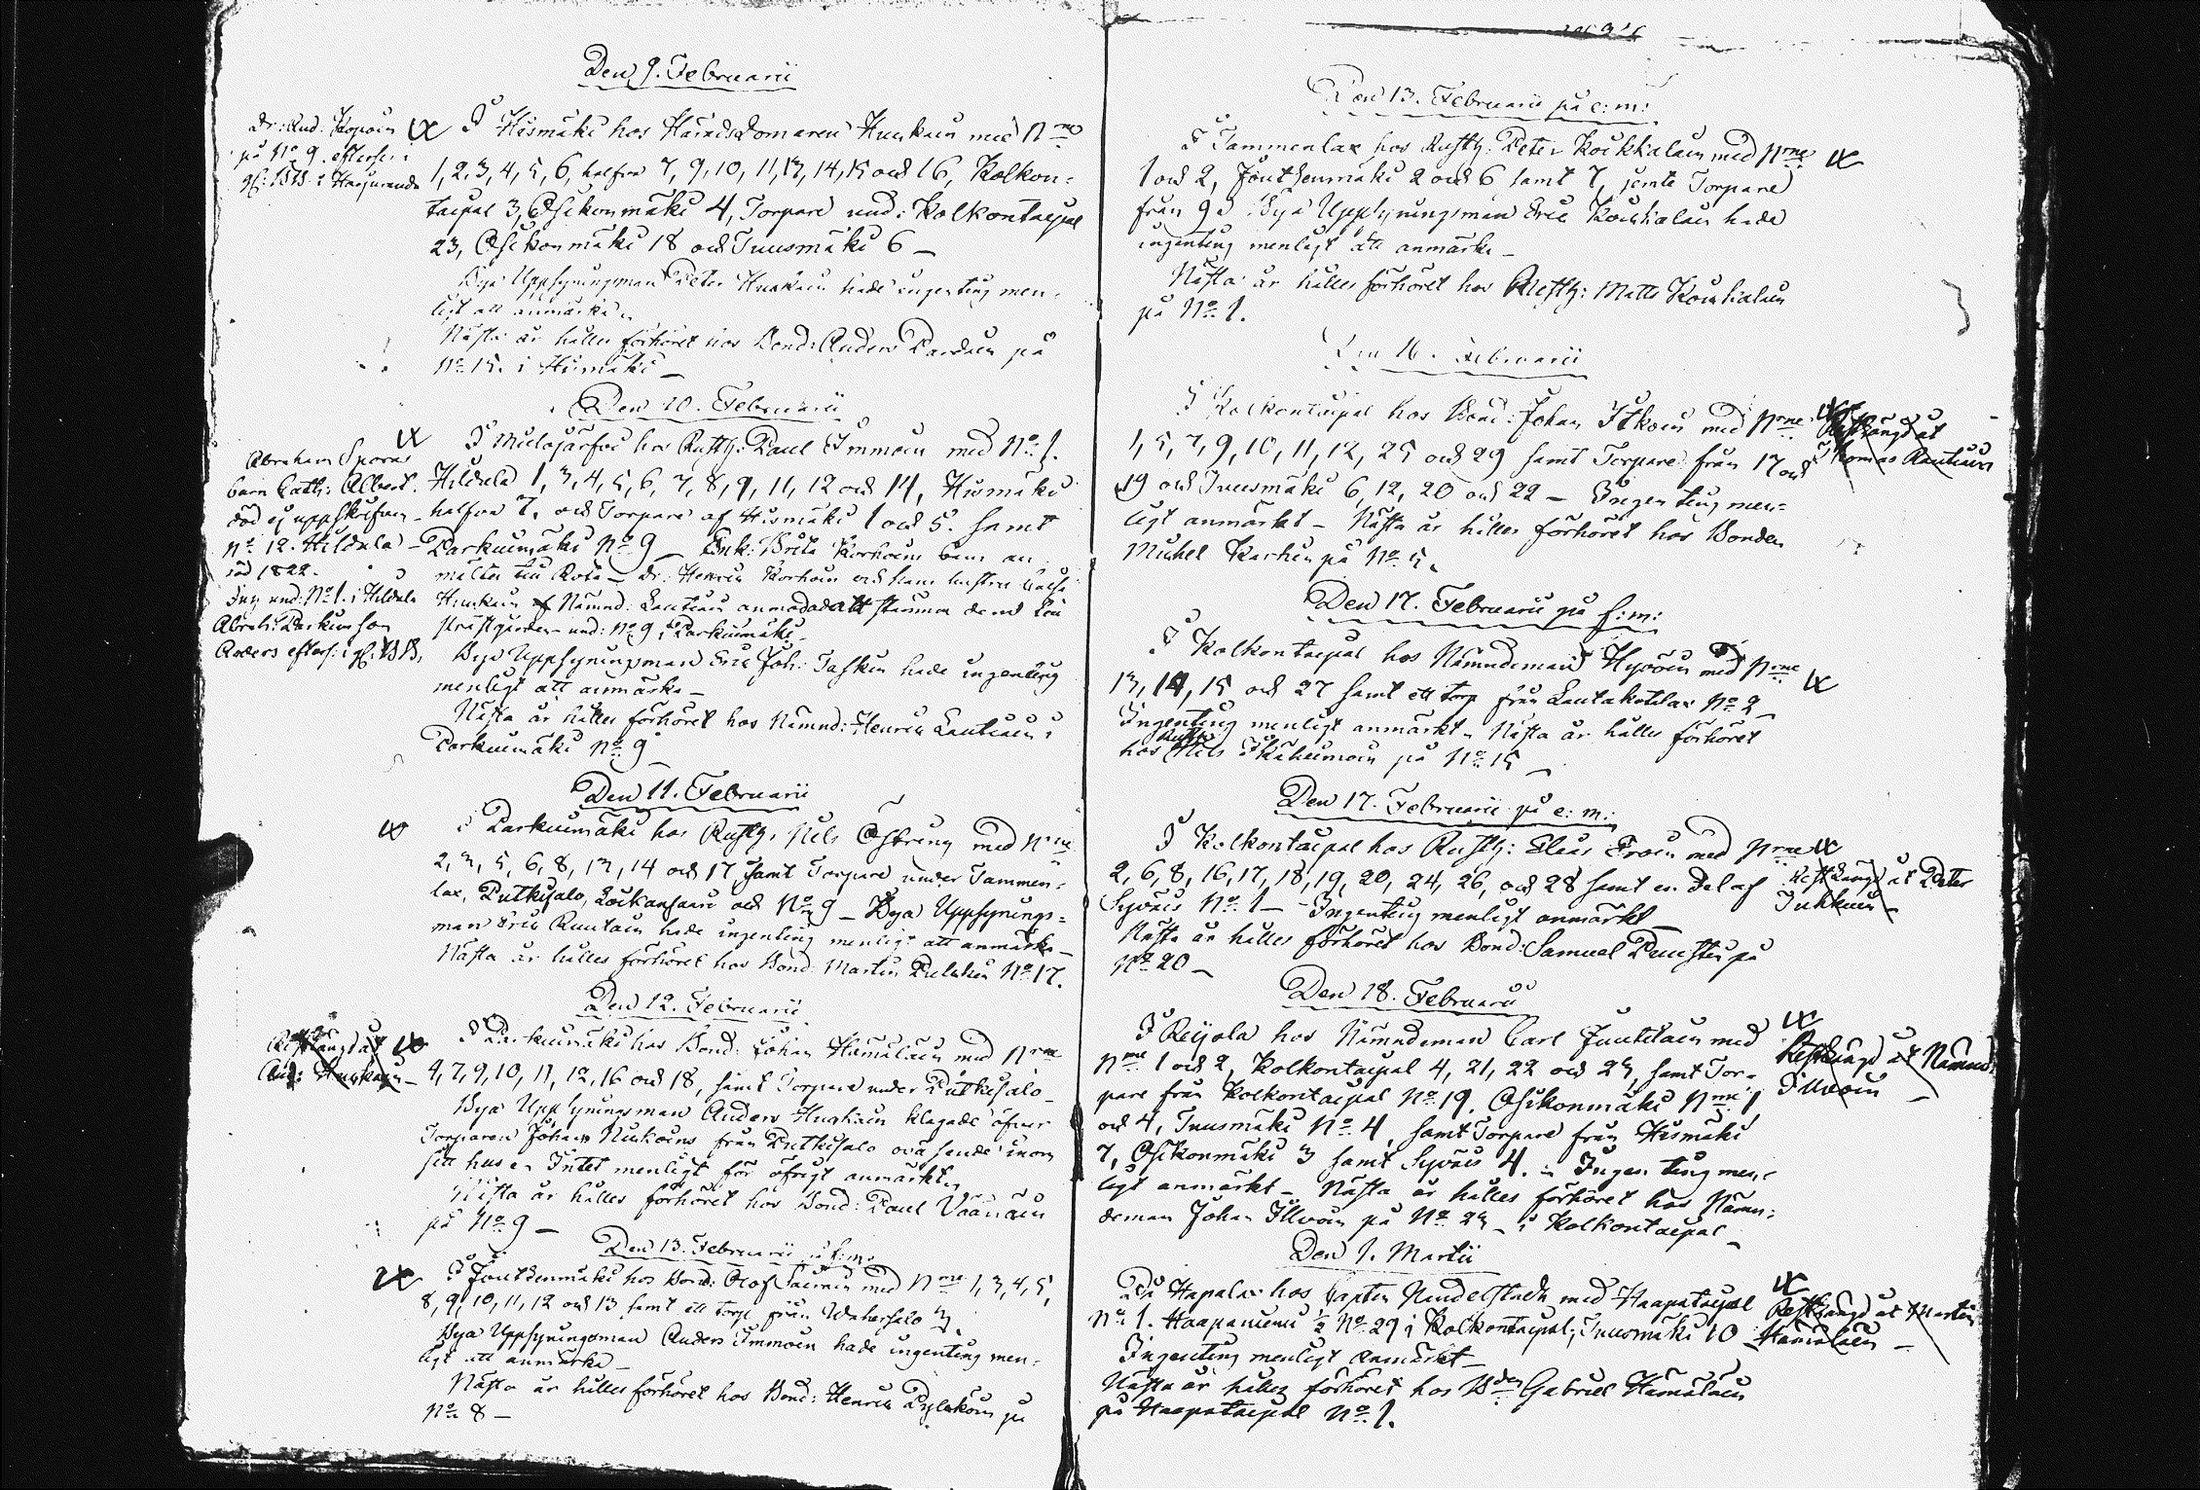 Den 9. Februarii
Dr: And: Kopoin
på No 9. efterses i
gl: 1818 i Harjuranda
I Hismäki hos HäradsDomaren Huskain med Nrne
1, 2, 3, 4, 5, 6, halfva 7, 9, 10, 11, 13, 14, 15 och 16, Kolkon-
taipal 3, Osikonmäki 4, Torpare und: Kolkontaipal
23, Osikonmäki 18 och Tuusmäki 6 –
Bya Uppsyningsman Peter Huskain hade ingenting men-
ligt att anmärka.
Nästa år hålles förhöret hos Bond: Anders Pardain på
No 15. i Hismäki –
Den 10. Februarii
I Mielojärfvi hos Rusth: Paul Immoin med No 1.
Hildula 1, 3, 4, 5, 6, 7, 8, 9, 11, 12 och 14, Hismäki
halfva 7, och Torpare af Hismäki 1 och 5. samt
Parkuimäki No 9 – Enk: Brita Korhoins barn an-
mältes till Rota – Dr: Henric Korhoin och hans hustru
Huskain Nämnd: Lautiain anmodad att stämma
und: No 9 i Parkuimäki –
Bya Uppsyningsman Eric Joh: Taskin hade ingenting
menligt att anmärka –
Nästa år hålles förhöret hos Nämnd: Henric Lautiain i
Parkuimäki No 9 –
Abraham Sporns
barn Cath: Albert.
död ej uppskrifven
No 12. Hildula –
död 1822.
und: No 1. i Hildula
Abrah: Parkuin son
Anders efters: i gl: 1818,
Den 11. Februarii
i Parkuimäki hos Rusth: Nils Östring med Nrne
2, 3, 5, 6, 8, 13, 14 och 17 samt Torpare under Tammen-
lax, Putkisalo, Loikansari och No 9 – Bya Uppsynings-
man Eric Rautain hade ingenting menligt att anmärka –
Nästa år hålles förhöret hos Bond: Martin Pulkin No 17.
Den 12. Februarii
Restlängd åt
And: Huskain –
I Parkuimäki hos Bond: Johan Hämäläin med Nrne
4, 7, 9, 10, 11, 12, 16 och 18, samt Torpare under Putkisalo –
Bya Uppsyningsman Anders Huskain klagade öfver
Torparen Johan Nukoins från Putkisalo oväsende inom
sitt hus – Intet menligt för öfrigt anmärktes
Nästa år hålles förhöret hos Bond: Paul Väänäin
på No 9 –
Den 13. Februarii på f: m:
I Joutsenmäki hos Bond: Olof med Nrne 1, 3, 4, 5,
8, 9, 10, 11, 12 och 13 samt ett torp från Wahersalo 3
Bya Uppsyningsman Anders Immoin hade ingenting men-
ligt att anmärka –
Nästa år hålles förhöret hos Bond: Henric Pylkköin på
No 8 –
Den 13. Februarii på e: m:
I Tammenlax hos Rusth: Peter Koikkalain med Nrne
1 och 2, Joutsenmäki 2 och 6 samt 7, jemte Torpare
från 9 – Bya Uppsyningsman Eric Koikkalain hade
ingenting menligt att anmärka –
Nästa år hålles förhöret hos Rusth: Matts Koikkalain
på No 1.
Den 16. Februarii
I Kolkontaipal hos Bond: Johan Itkoin med Nrne
1, 5, 7, 9, 10, 11, 12, 25 och 29 samt Torpare från 17 och
19 och Tuusmäki 6, 12, 20 och 22 – Ingenting men-
ligt anmärkt – Nästa år hålles förhöret hos Bonden
Michel Karhin på No 5.
Restlängd åt
Thomas Rautiain
Den 17. Februarii på f: m:
I Kolkontaipal hos Nämndeman Hyvöin med Nrne
13, 14, 15 och 27 samt ett torp från Lautakotalax No 2 –
Ingenting menligt anmärkt – Nästa år hålles förhöret
hos Rusth: Nils på No 15 –
Den 17. Februarii på e: m:
I Kolkontaipal hos Rusth: Elias Eroin med Nrne
2, 6, 8, 16, 17, 18, 19, 20, 24, 26, och 28 samt en del af
Syväis No 1 – Ingenting menligt anmärkt –
Nästa år hålles förhöret hos Bond: Samuel Puustin på
No 20 –
Restlängd åt Peter
Juhkuin –
Den 18. Februarii
I Reijola hos Nämndeman Carl Juutilain med
Nrne 1 och 2, Kolkontaipal 4, 21, 22 och 23, samt Tor-
pare från Kolkontaipal No 19. Osikonmäki Nrne 1
och 4, Tuusmäki No 4, samt Torpare från Hismäki
7, Osikonmäki 3 samt Syväis 4. – Ingenting men-
ligt anmärkt – Nästa år hålles förhöret hos Nämn-
deman Johan Illvoin på No 23 – i Kolkontaipal –
Restlängd åt Nämnd:
Illvoin –
Den 1. Martii
På Hapalax hos Capten Nandelstadh med Haapataipal
No 1. Haapaniemi ½ No 29 i Kolkontaipal, Tuusmäki 10 –
Ingenting menligt anmärkt –
Nästa år hålles förhöret hos Bden Gabriel Hämäläin
på Haapataipal No 1.
Restlängd åt Martin
Hämäläin –